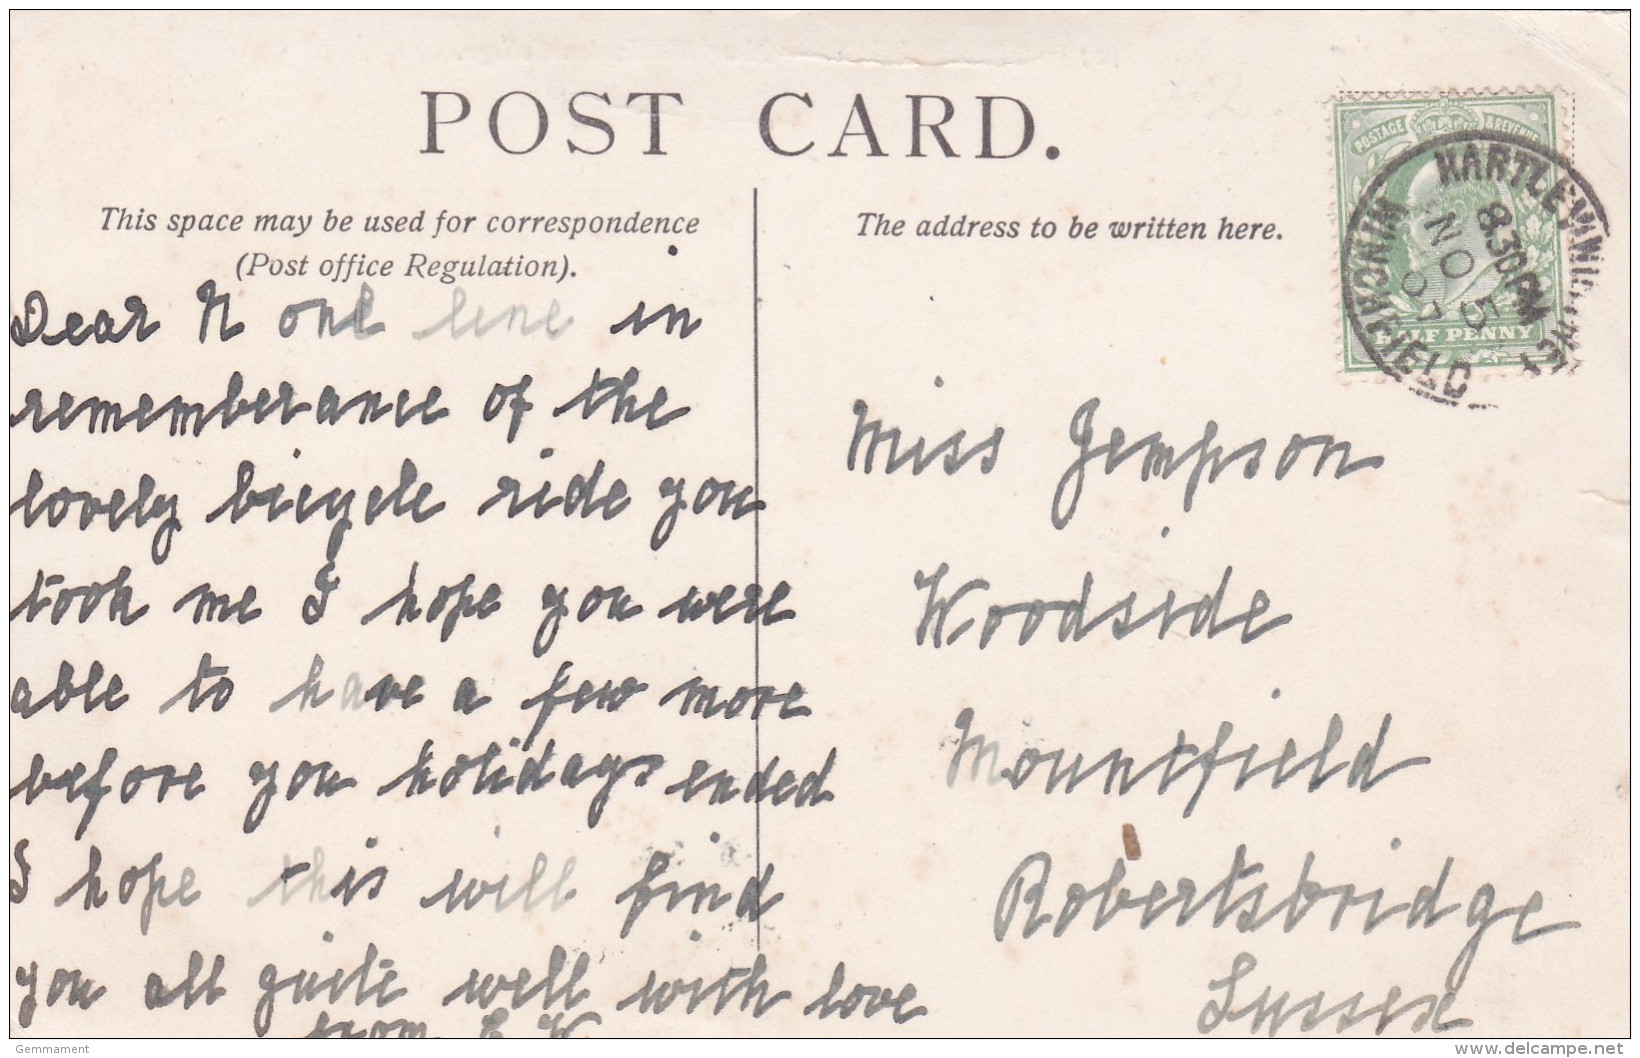 POST CARD.
This space may be used for correspondence
(Post office Regulation).
The address to be written here.
POSTAGE & REVENUE
HALF PENNY
HARTLEY WINTNEY
WINCHFIELD
8.30 PM
NO 5
07
Dear N one line in
rememberance of the
lovely bicycle ride you
took me I hope you were
able to have a few more
before you holidays ended
I hope this will find
you all quite well with love
from E K
Miss Jempson
Woodside
Mountfield
Robertsbridge
Sussex
Gemmament
delcampe.net